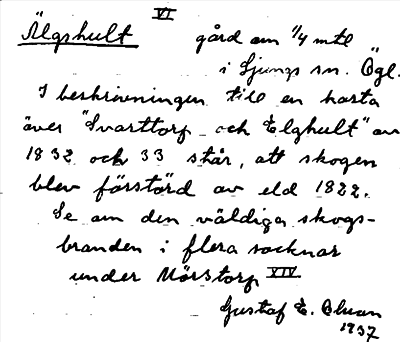 VI
Älgshult gård om 1/4 mtl
i Ljungs sn. Ögl.
I beskrivningen till en karta
över "Svarttorp och Elghult" av
1832 och 33 står, att skogen
blev förstörd av eld 1822.
Se om den väldiga skogs-
branden i flera socknar
under Mörstorp XIV
Gustaf E.
1937